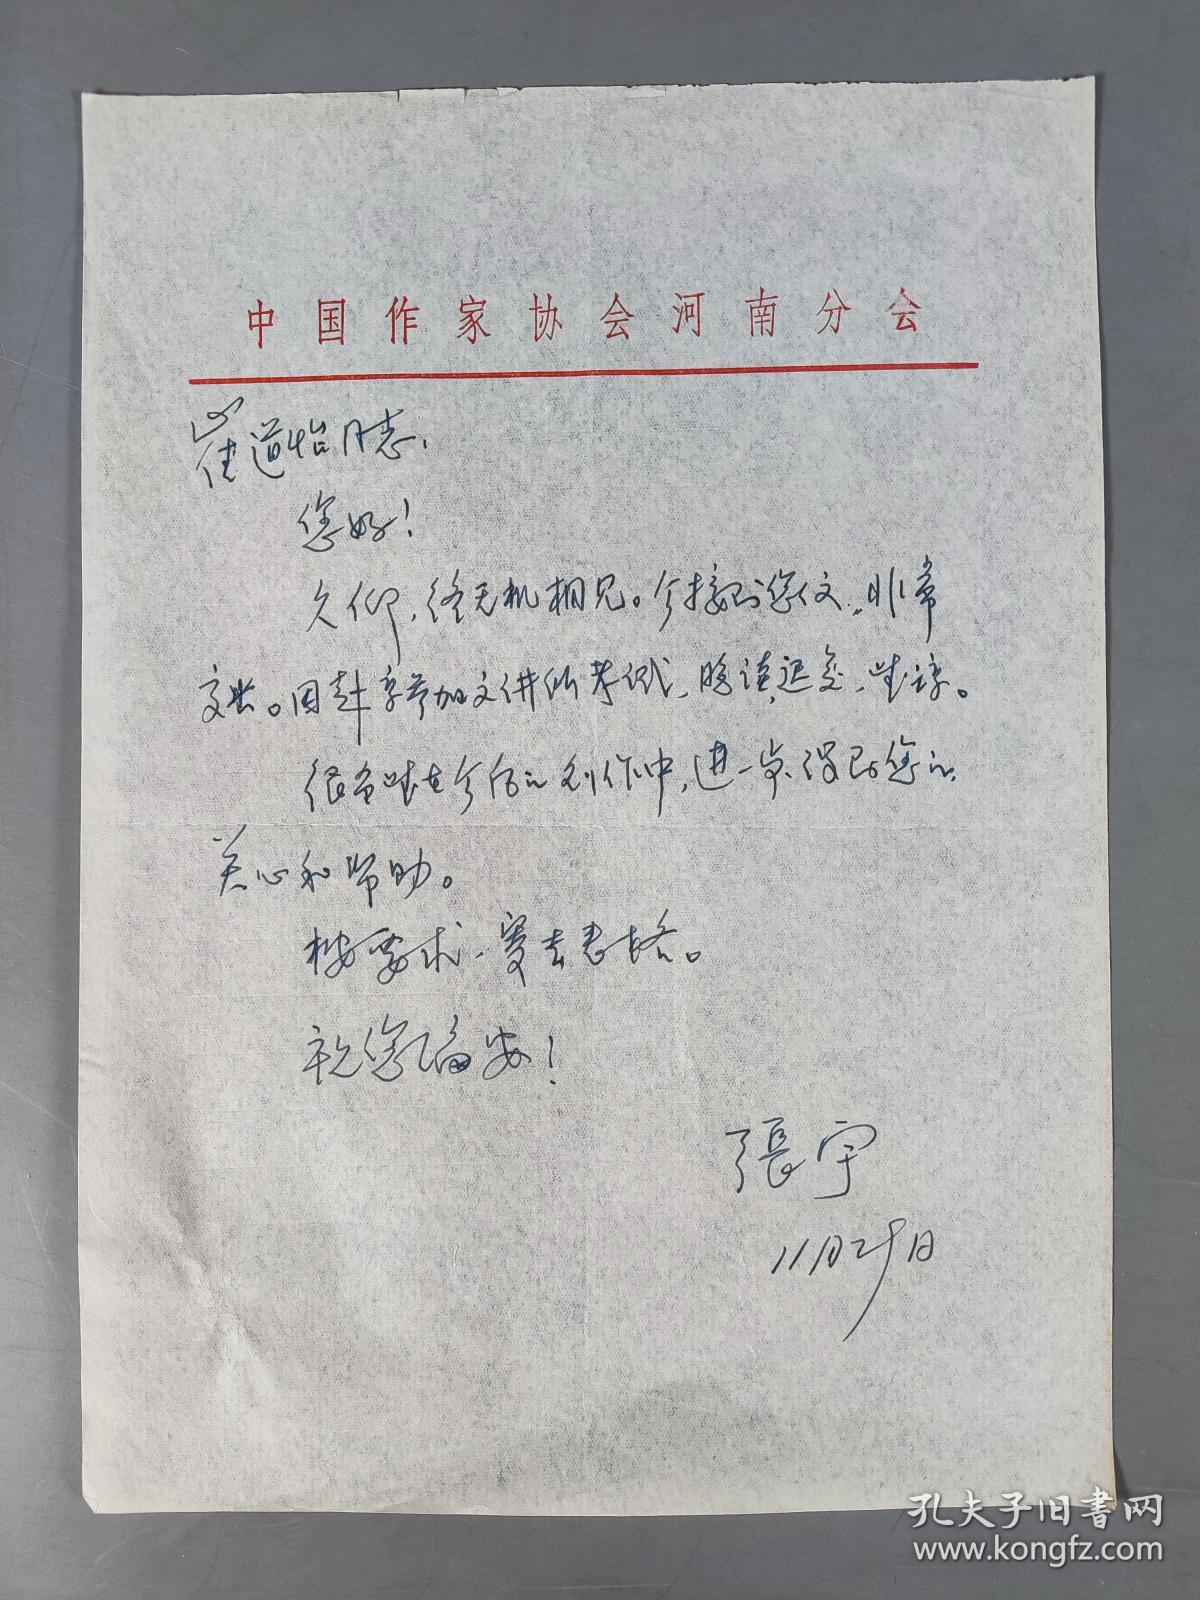 中国作家协会河南分会
崔道怡同志，
您好！
久仰，终无机相见。今接到您信，非常
高兴。因赴京参加文讲所考试，晚读迟交，望谅。
很希望在今后的创作中，进一步得到您的
关心和帮助。
按要求，寄去表格。
祝您编安！
張宇
11月29日
孔夫子旧书网
www.kongfz.com